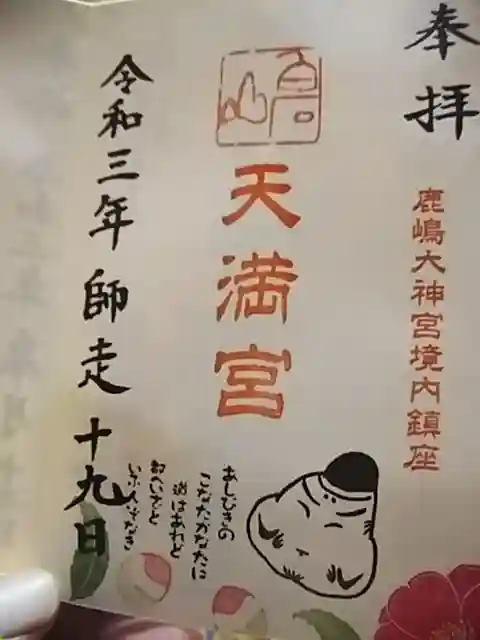 奉拝
鹿嶋大神宮境内鎮座
天満宮
あしびきの
こなたかなたに
道はあれど
都へいざと
いふ人ぞなき
令和三年師走十九日